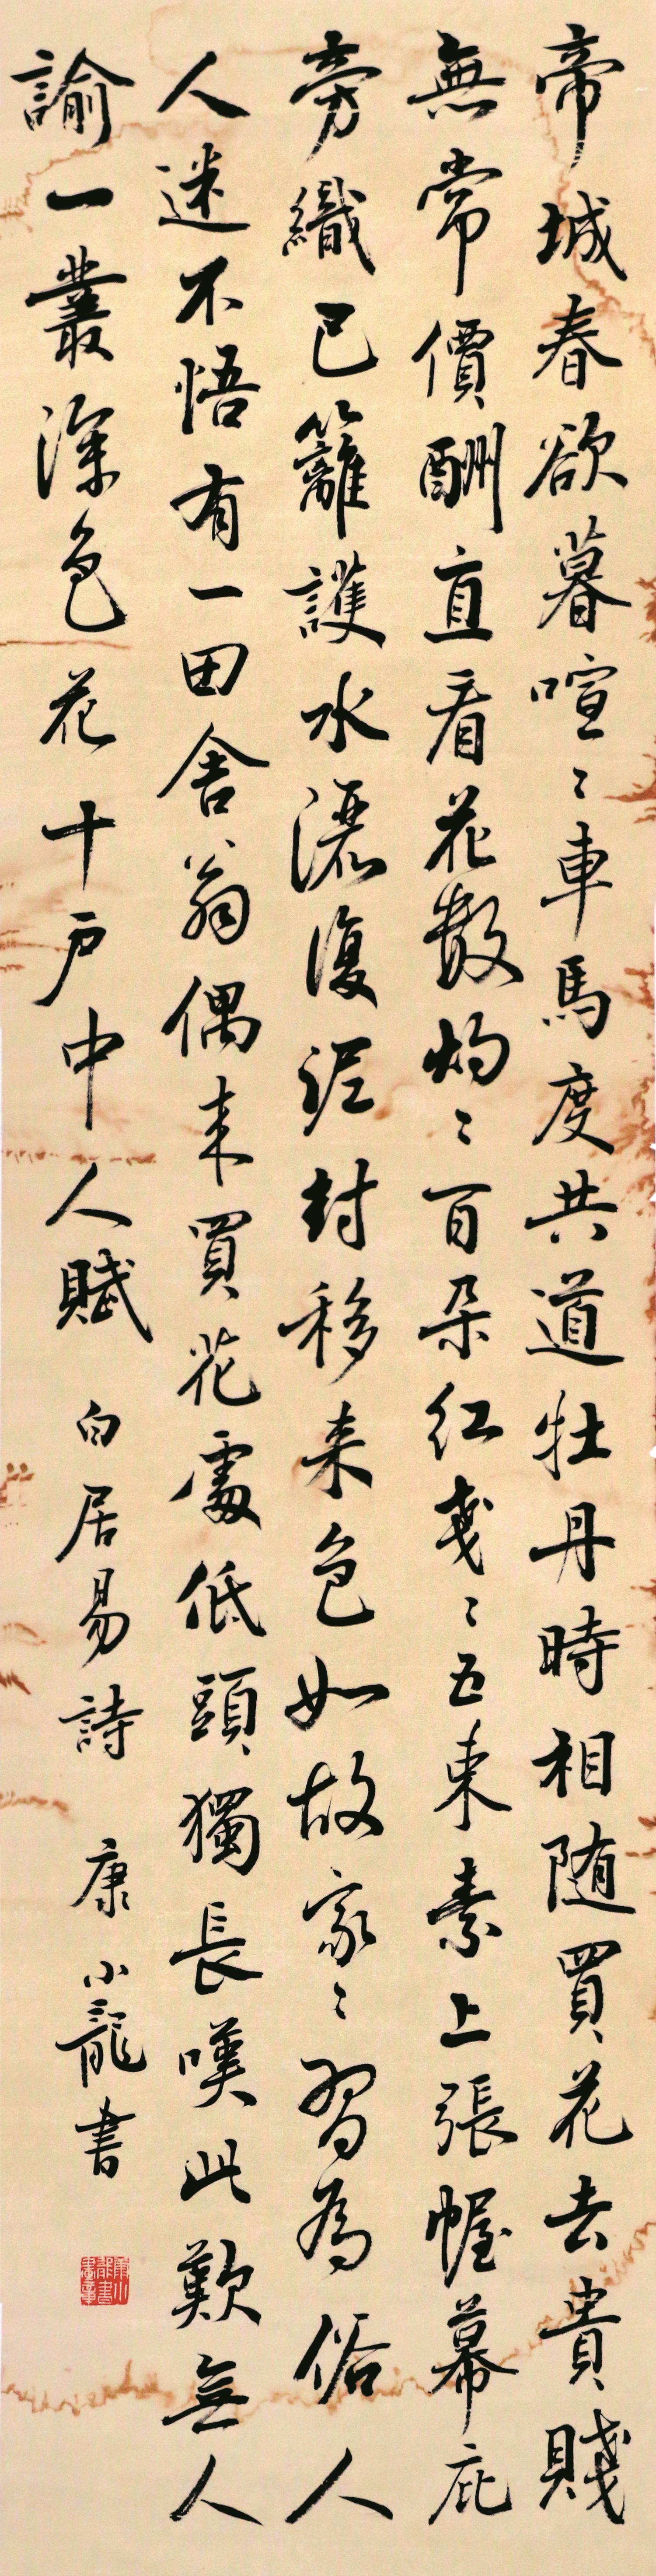 帝城春欲暮喧〻車馬度共道牡丹時相随買花去貴賤
無常價酬直看花數灼〻百朵紅戔〻五束素上張幄幕庇
旁織巴籬護水灑復泥封移来色如故家〻習為俗人
人迷不悟有一田舍翁偶来買花處低頭獨長嘆此歎無人
諭一叢深色花十戶中人賦 白居易詩 康小龍書
康小龍書畫章